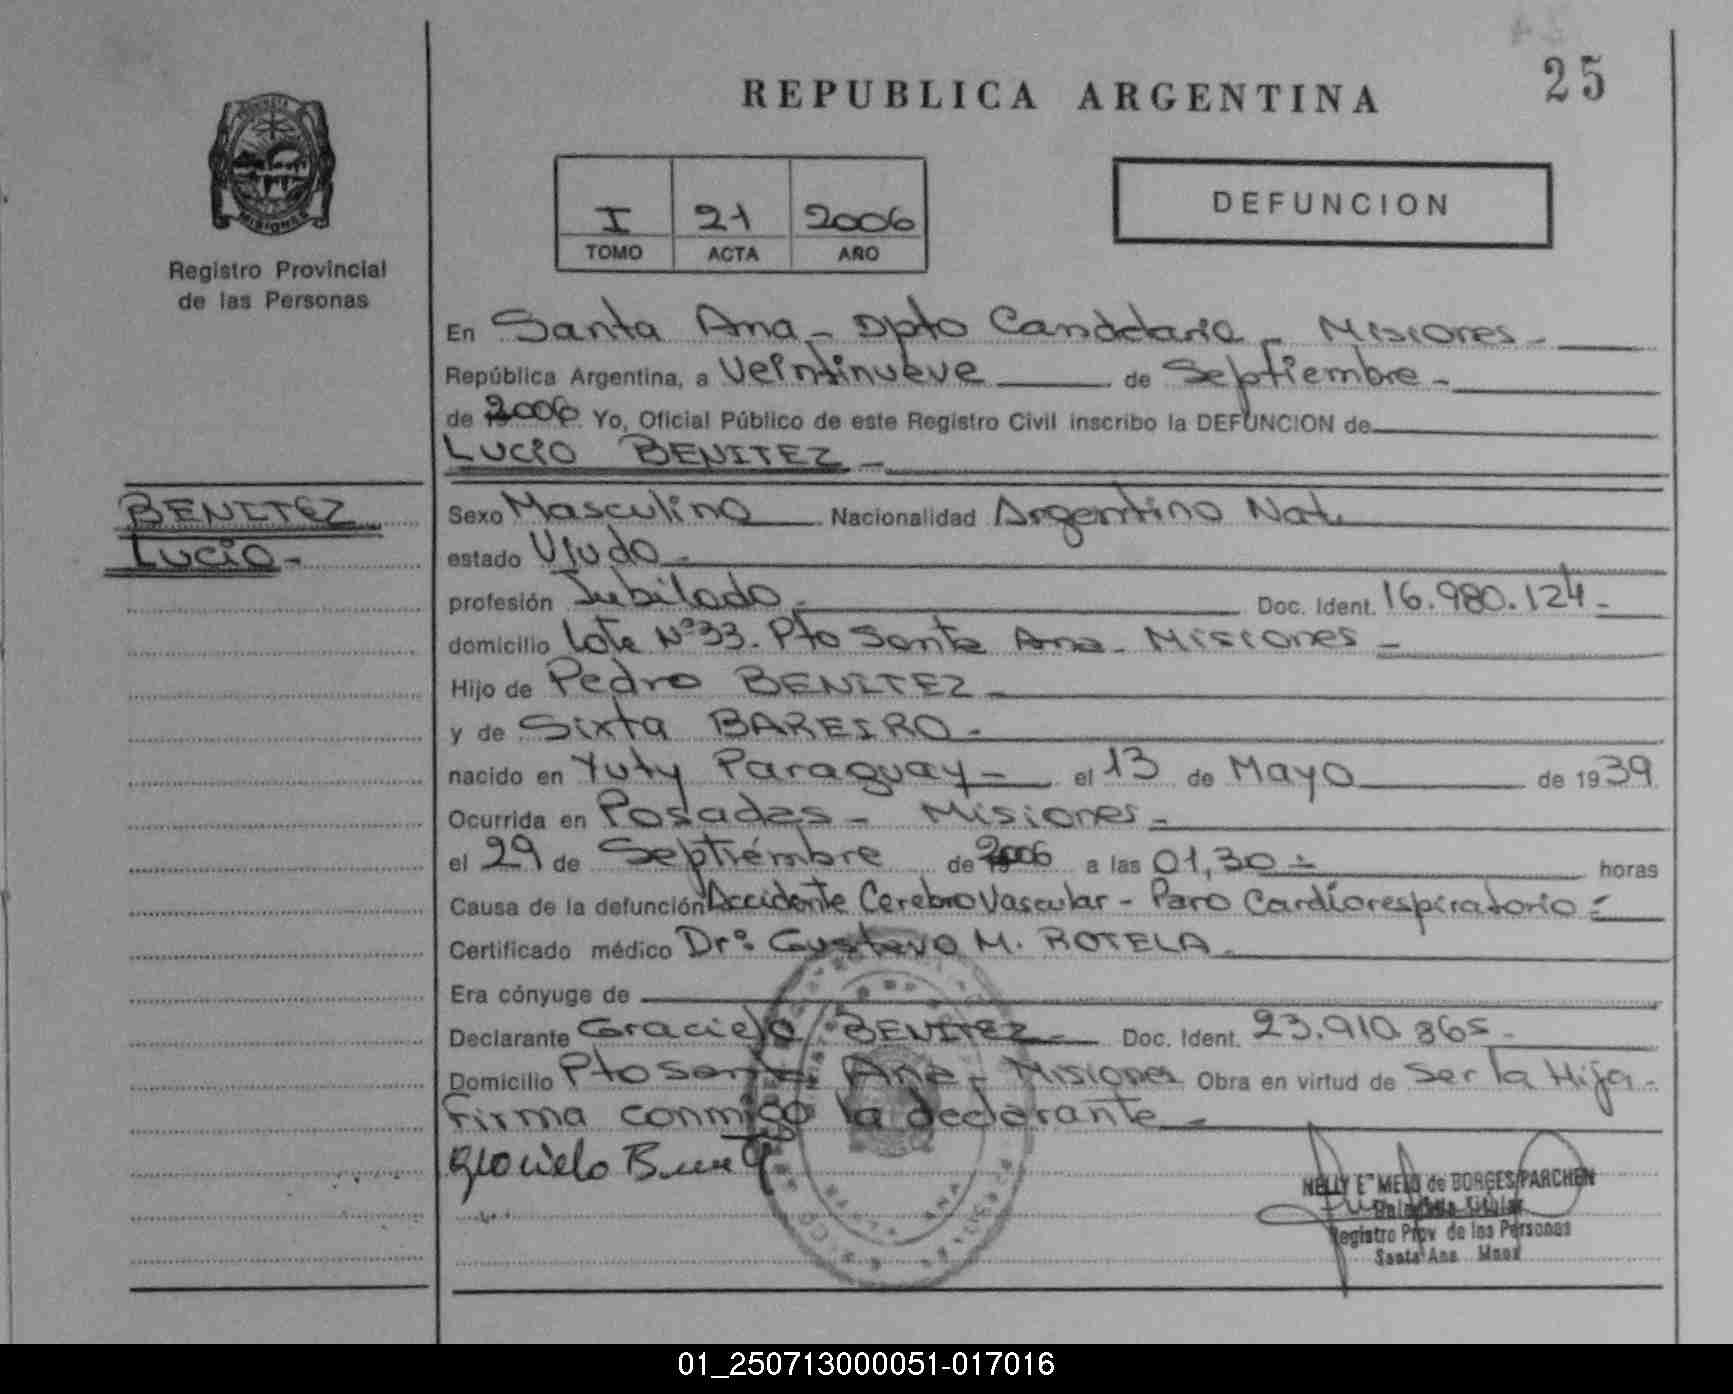 REPUBLICA ARGENTINA
25
MISIONES
Registro Provincial
de las Personas
I 21 2006
TOMO ACTA AÑO
DEFUNCION
En Santa Ana - Dpto Candelaria - Misiones -
República Argentina, a Veintinueve de Septiembre -
de 2006 Yo, Oficial Público de este Registro Civil inscribo la DEFUNCION de
LUCIO BENITEZ -
BENITEZ
Lucio -
Sexo Masculino Nacionalidad Argentino Nat.
estado Viudo -
profesión Jubilado - Doc. Ident. 16.980.124 -
domicilio Lote Nº 33. Pto Santa Ana - Misiones -
Hijo de Pedro BENITEZ -
y de Sixta BAREIRO -
nacido en Yuty Paraguay - el 13 de Mayo de 1939
Ocurrida en Posadas - Misiones -
el 29 de Septiembre de 2006 a las 01,30 - horas
Causa de la defunción Accidente Cerebro Vascular - Paro Cardiorespiratorio -
Certificado médico Dr: Gustavo M. ROTELA -
Era cónyuge de
Declarante Graciela BENITEZ - Doc. Ident. 23.910.865 -
Domicilio Pto Santa Ana - Misiones Obra en virtud de Ser la Hija -
Firma conmigo la declarante -
SANTA ANA
NELLY E. MELO de BORGES PARCHEN
Registro Prov. de las Personas
Santa Ana Mnes
01_250713000051-017016